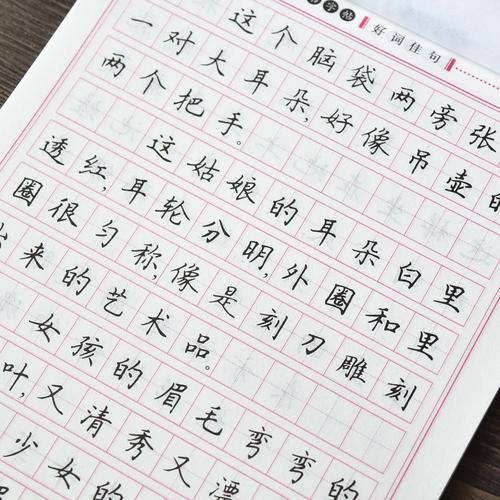 字帖
好词佳句
这个脑袋两旁张
一对大耳朵,好像吊壶的
两个把手。
这姑娘的耳朵白里
透红,耳轮分明,外圈和里
圈很匀称,像是刻刀雕刻
出来的艺术品。
女孩的眉毛弯弯的
叶,又清秀又漂
少女的